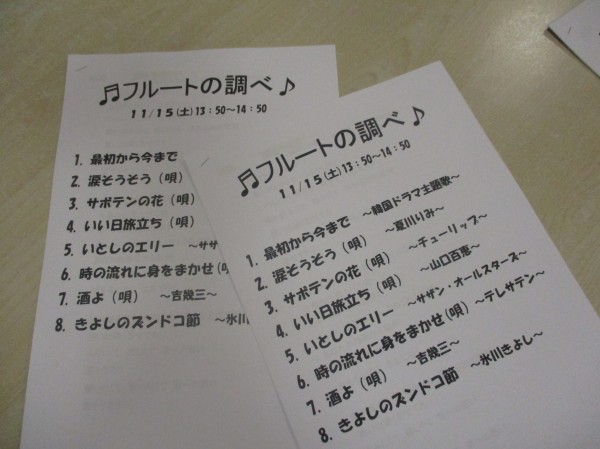 ♬フルートの調べ♪
11/15(土)13:50～14:50
1. 最初から今まで
2. 涙そうそう（唄）
3. サボテンの花（唄）
4. いい日旅立ち（唄）
5. いとしのエリー　～サザ
6. 時の流れに身をまかせ(唄
7. 酒よ（唄）　～吉幾三～
8. きよしのズンドコ節　～氷川
♬フルートの調べ♪
11/15(土)13:50～14:50
1. 最初から今まで　～韓国ドラマ主題歌～
2. 涙そうそう（唄）　～夏川りみ～
3. サボテンの花（唄）　～チューリップ～
4. いい日旅立ち（唄）　～山口百恵～
5. いとしのエリー　～サザン・オールスターズ～
6. 時の流れに身をまかせ(唄)　～テレサテン～
7. 酒よ（唄）　～吉幾三～
8. きよしのズンドコ節　～氷川きよし～